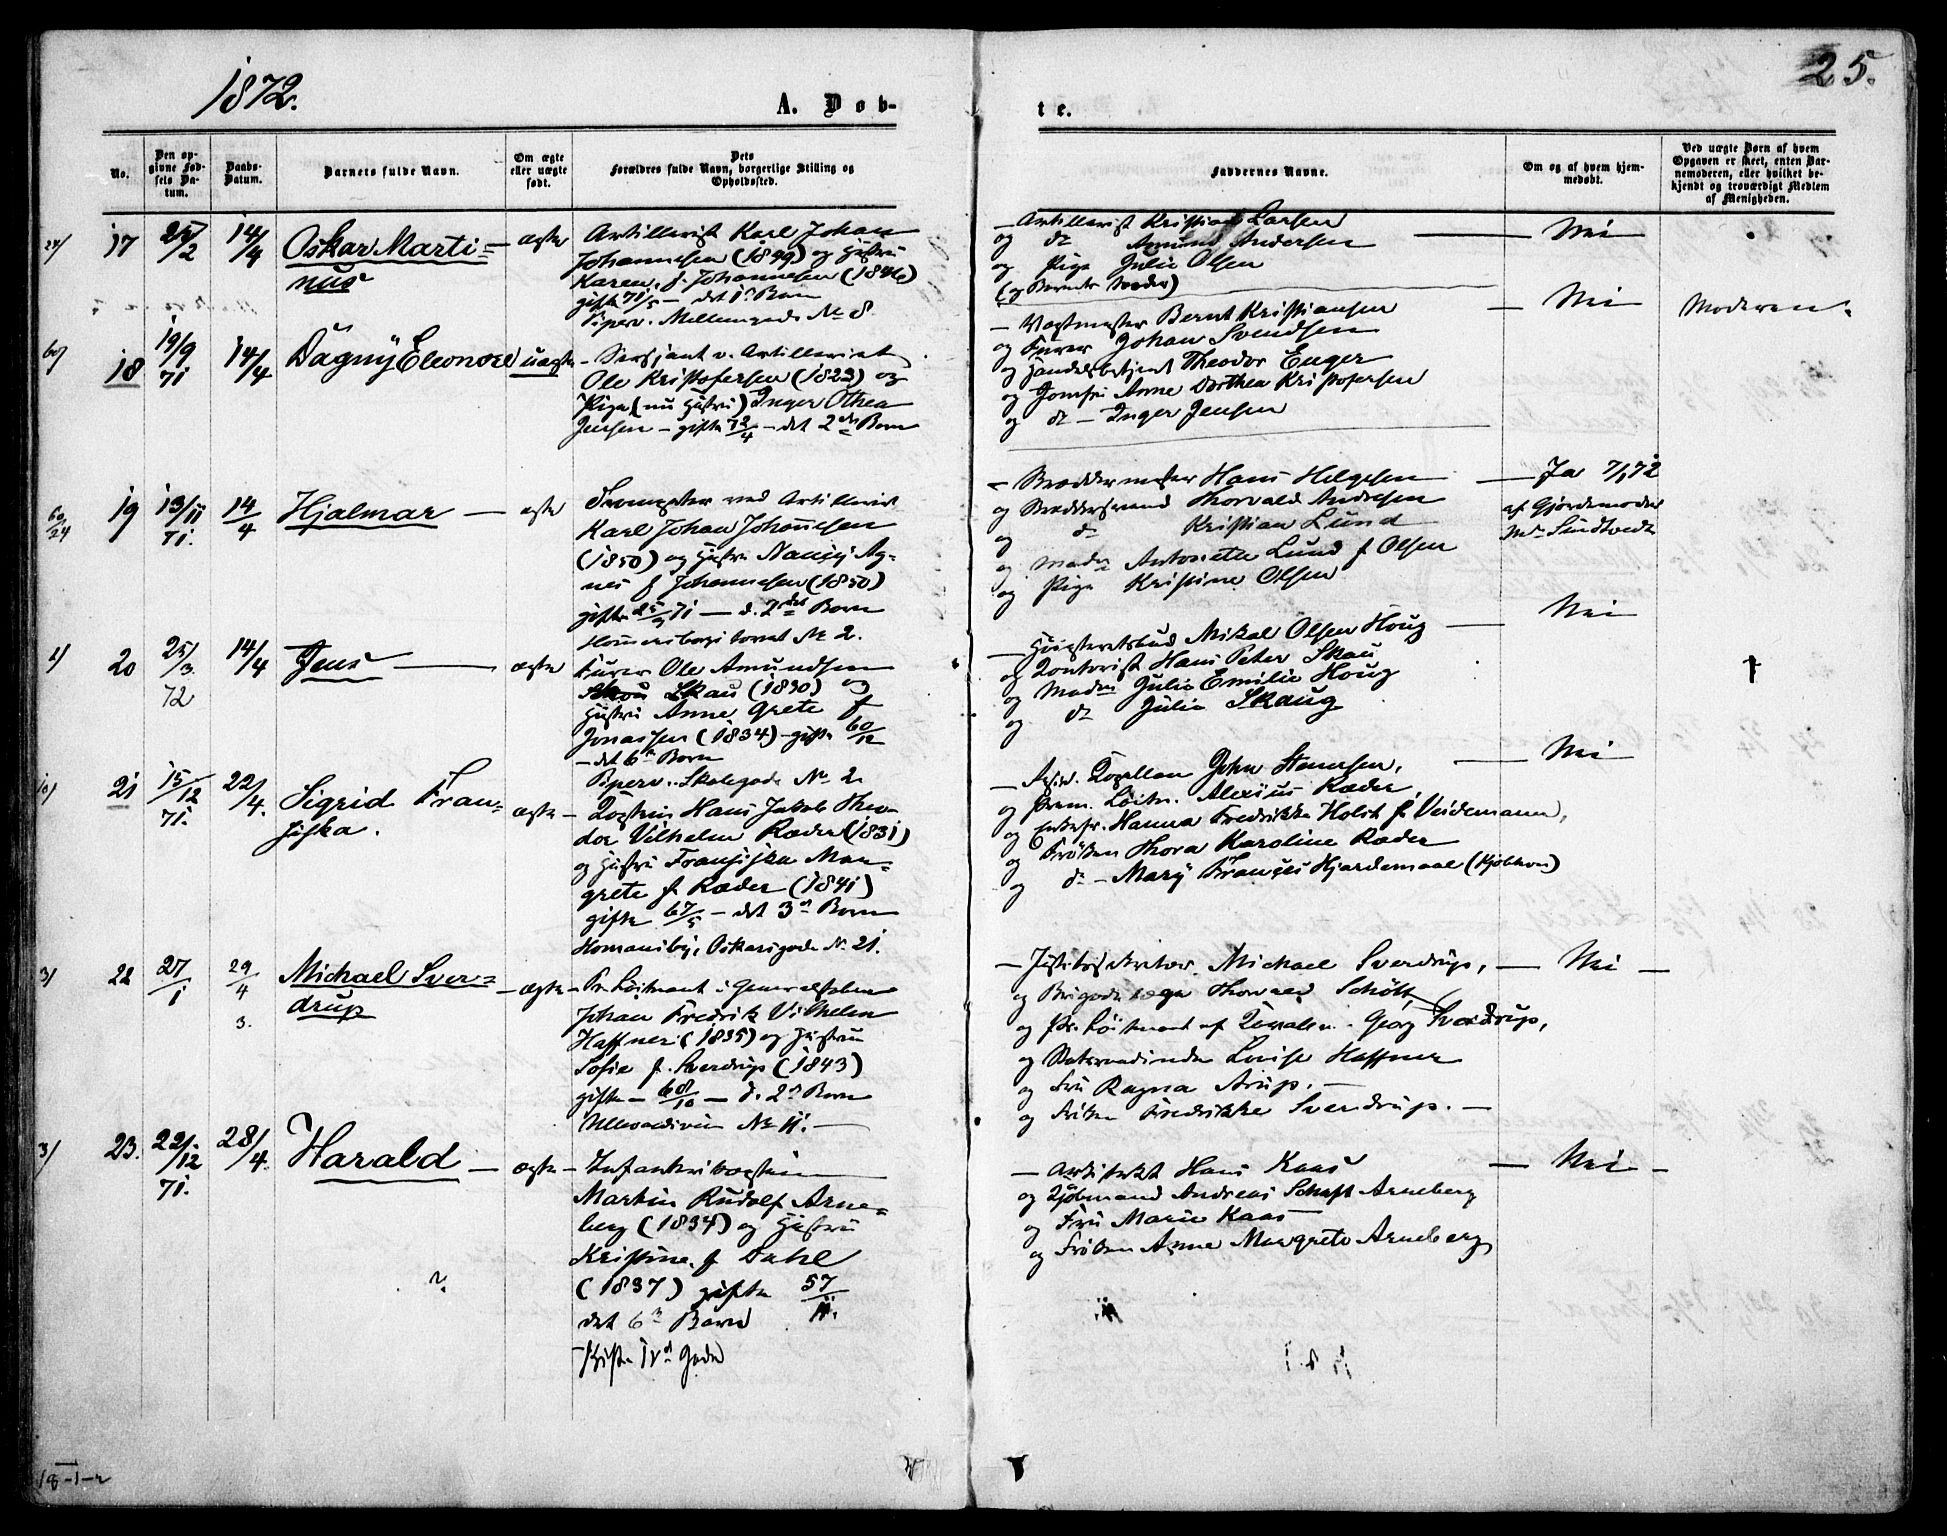 1872.
25.
A. Døb-
te.
No.
Den op-
givne Fød-
sels Da-
tum.
Daabs-
Datum.
Barnets fulde Navn.
Om ægte
eller uægte
født.
Dets
Forældres fulde Navn, borgerlige Stilling og
Opholdssted.
Faddernes Navne.
Om og af hvem hjem-
medøbt.
Ved uægte Børn af hvem
Opgaven er skeet, enten Bar-
nemoderen, eller hvilket be-
kjendt og troværdigt Medlem
af Menigheden.
17
14/4
Oskar Marti=
nus
ægte
Artillerist Karl Johan
Johannesen (1849) og Hustru
Karen f. Johannesen (1846)
gifte 71/5 — det 1e Barn
Piperv. Mellemgade No 8
Artillerist Kristian Larsen
og do Amund Andersen
og Pige Julie Olsen
(og Barnets Moder)
Nei
18
19/9
71
14/4
Dagny Eleonore
uægte
Sersjant v. Artilleriet
Ole Kristofersen (1823) og
Pige (nu Hustru) Inger Othea
Jensen — gifte 72/4 — det 2det Barn
Vagtmester Bernt Kristiansen
og Furer Johan Svendsen
og Handelsbetjent Theodor Enger
og Jomfru Anne Dorthea Kristofersen
og do — Inger Jensen
Nei
Moderen.
19
13/11
71.
14/4
Hjalmar
ægte
ved Artilleriet
Karl Johan Johannesen
(1850) og Hustru Nancy Ag-
nes f Johannesen (1850)
gifte 71 — d. 2det Barn
No 2.
Hans Helgesen
og Thorvald Andresen
og do Kristian Lund
og Madm Antonette Lund f Olsen
og Pige Kristine Olsen
Ja 7/1 72
af Gjordemoder
Md Sundtvedt
20
25/3
72
14/4
Jens
ægte
Furer Ole Amundsen
Skau (1830) og
Hustru Anne Grete f
Jonassen (1834) gifte 60/12
— det 6e Barn
Piperv. Skolegade No 2.
Mikal Olsen Houg
og Kontorist Hans Peter Skau
og Madm Julie Emilie Houg
og do Julie Skaug
Nei
21
15/12
71.
22/4.
Sigrid Fran=
siska.
ægte
Kaptein Hans Jakob Theo-
dor Vilhelm Ræder (1831)
og Hustru Fransiska Mar=
grete f. Ræder (1841)
gifte 67/5 — det 3e Barn
Homansby, Oskarsgade No. 21.
Kapellan John Stenersen,
og Prem. Løitn. Alexius Ræder,
og Enkefr. Hanna Fredrikke Holst f. Veidemann,
og Frøken Thora Karoline Ræder
og do — Mary Françes Hjardemaal (Kjøbhvn)
Nei
22
27/1
29/4
3.
Michael Sver=
drup
ægte
Pr. Løitnant i Generalstaben
Johan Fredrik Vilhelm
Haffner (1835) og Hustru
Sofie f. Sverdrup (1843)
gifte — 68/10 — d. 2e Barn
Ullevoldsvei No 11.
Michael Sverdrup,
og Brigadelæge Thorvald Schøtt,
og Pr. Løitnant af Kavaler. Georg Sverdrup,
og Louise Haffner
og Fru Ragna Arup.
og Frøken Fredrikke Sverdrup.
Nei
23.
22/12
71.
28/4.
Harald
ægte
Infanterikaptein
Martin Rudolf Arne=
berg (1834) og Hustru
Kristine f Dahl
(1837) gifte 57/11.
det 6e Barn
Gade
Arkitekt Hans Kaas
og Kjøbmand Andreas Schaft Arneberg
og Fru Marie Kaas
og Frøken Anne Margrete Arneberg
Nei
18-1-2